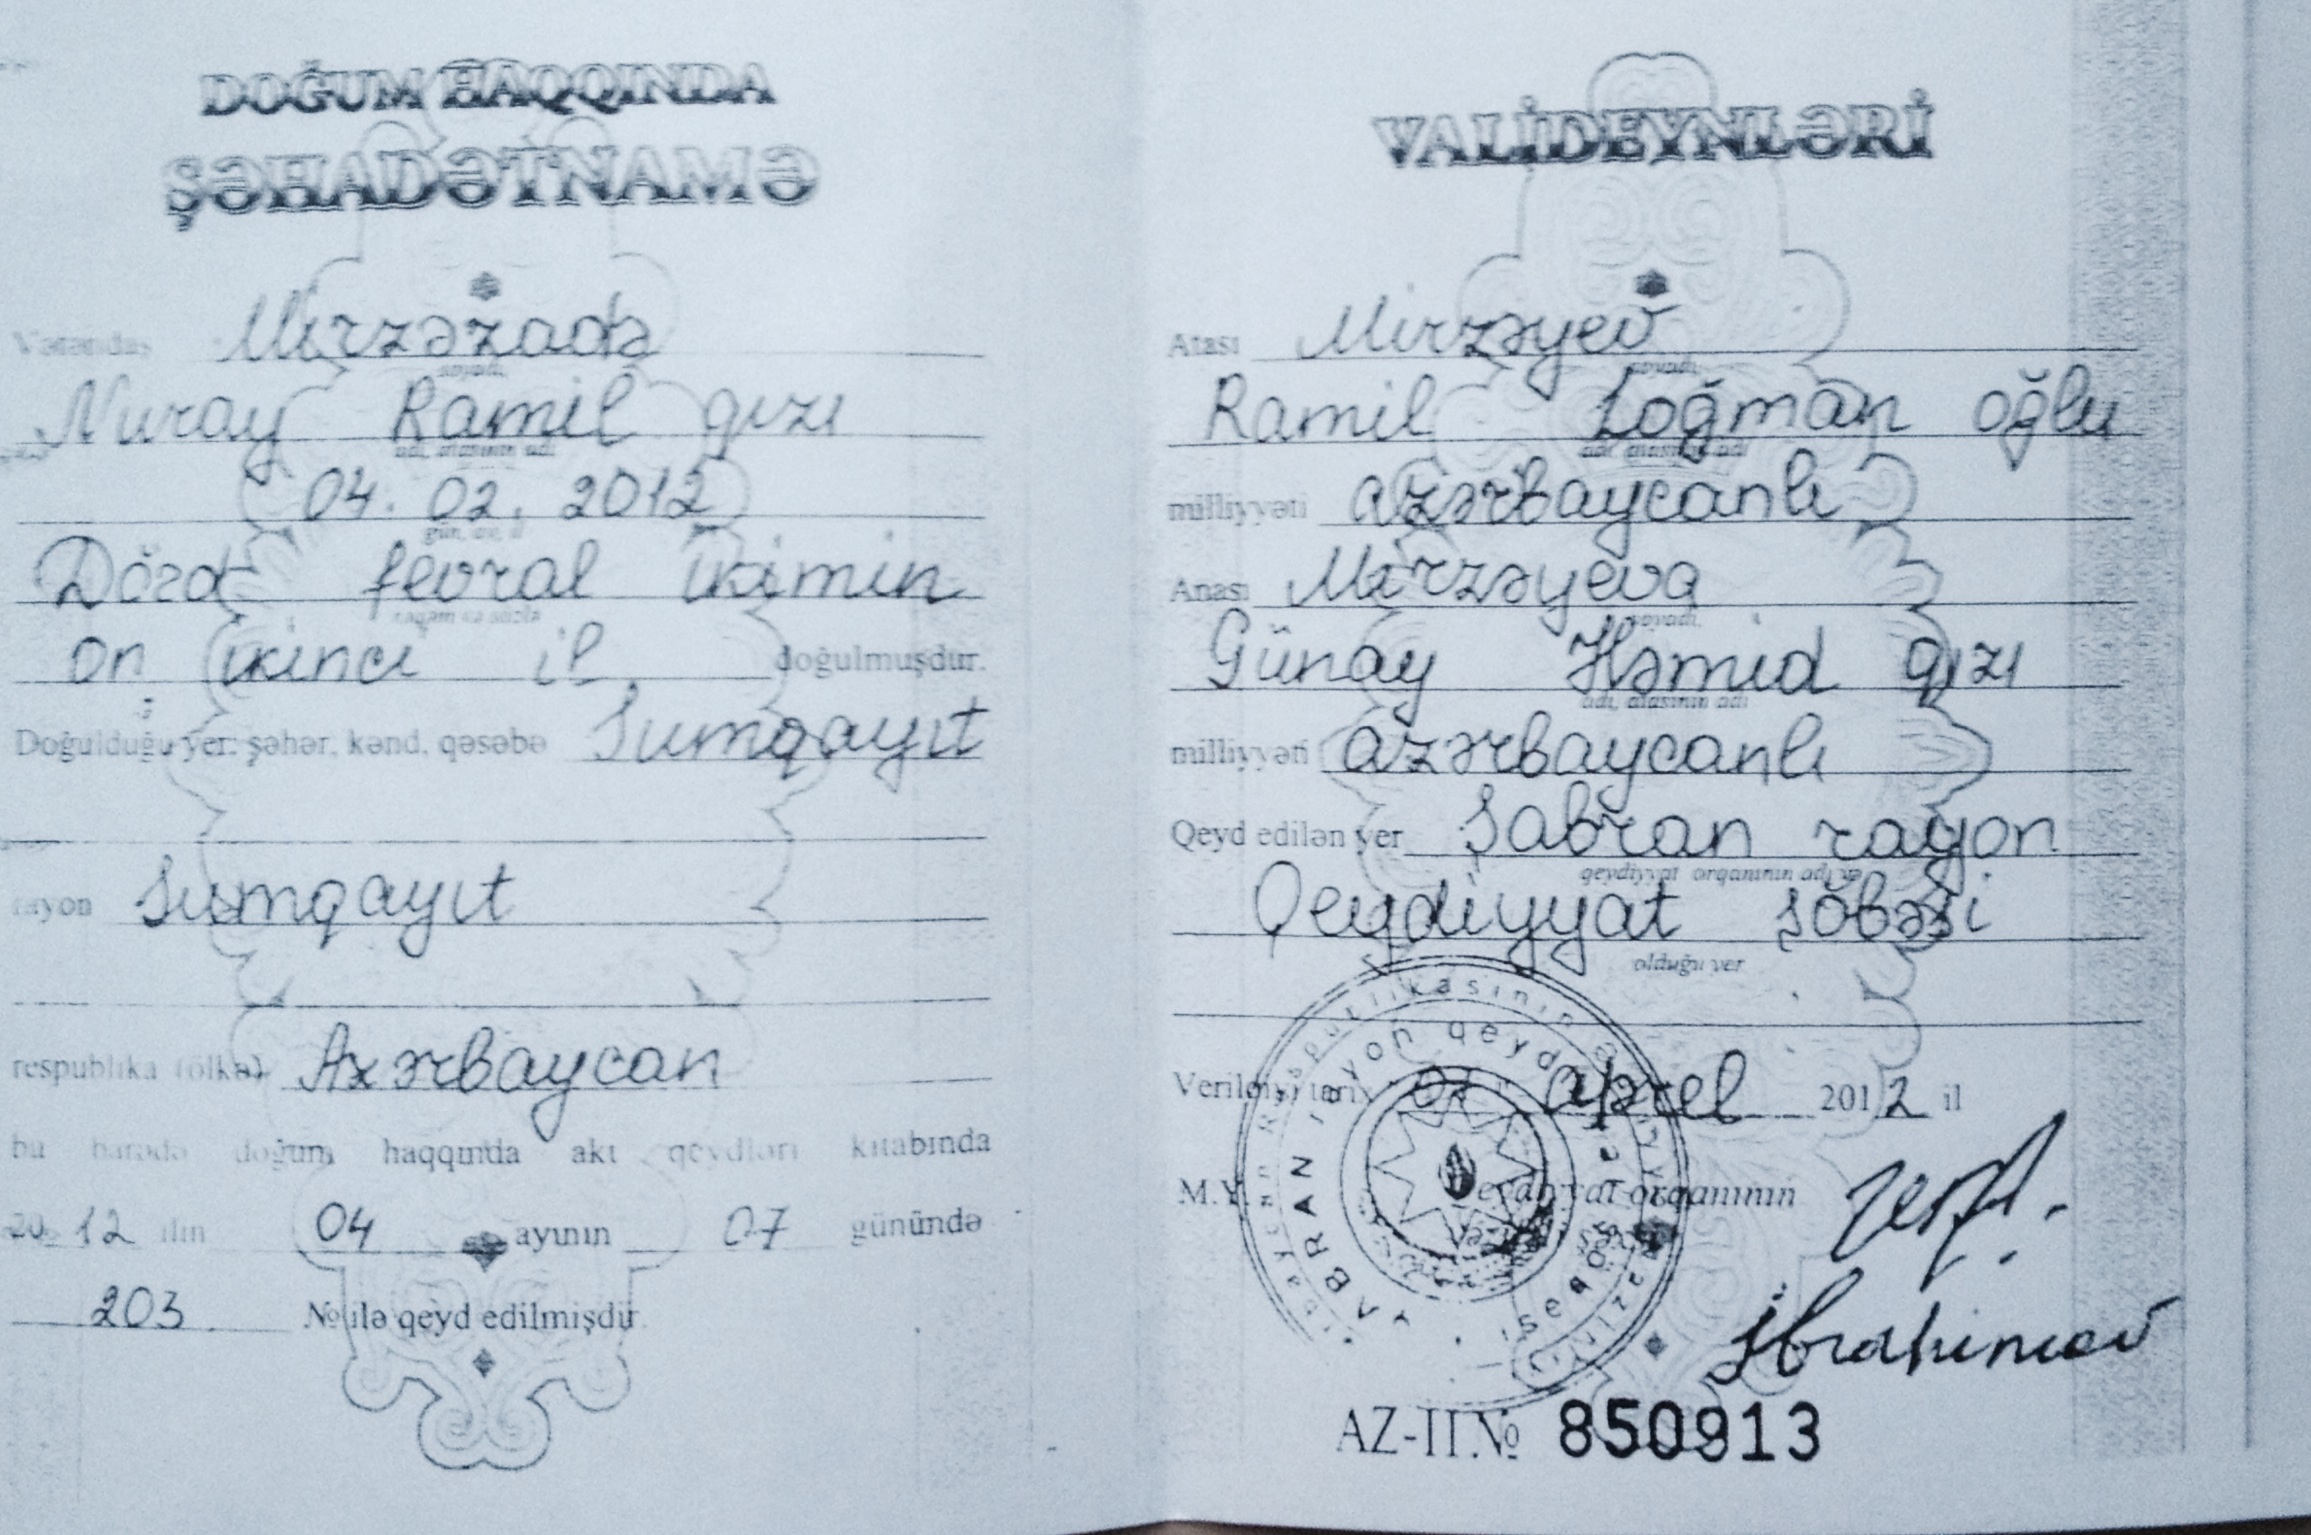 DOĞUM HAQQINDA
ŞƏHADƏTNAMƏ
Vətəndaş Mirzəzadə
soyadı,
Nuray Ramil qızı
adı, atasının adı
04. 02. 2012
gün, ay, il
Dörd fevral ikimin
rəqəm və sözlə
on ikinci il doğulmuşdur.
Doğulduğu yer: şəhər, kənd, qəsəbə Sumqayıt
rayon Sumqayıt
respublika (ölkə) Azərbaycan
bu barədə doğum haqqında akt qeydləri kitabında
2012 ilin 04 ayının 07 günündə
203 № ilə qeyd edilmişdir
VALİDEYNLƏRİ
Atası Mirzəyev
soyadı,
Ramil Loğman oğlu
adı, atasının adı
milliyyəti azərbaycanlı
Anası Mirzəyeva
soyadı,
Günay Həmid qızı
adı, atasının adı
milliyyəti azərbaycanlı
Qeyd edilən yer Şabran rayon
qeydiyyat orqanının adı və
Qeydiyyat şöbəsi
olduğu yer
Verildiyi tarix aprel 2012 il
M.Y. Qeydiyyat orqanının
İbrahimov
AZ-II № 850913